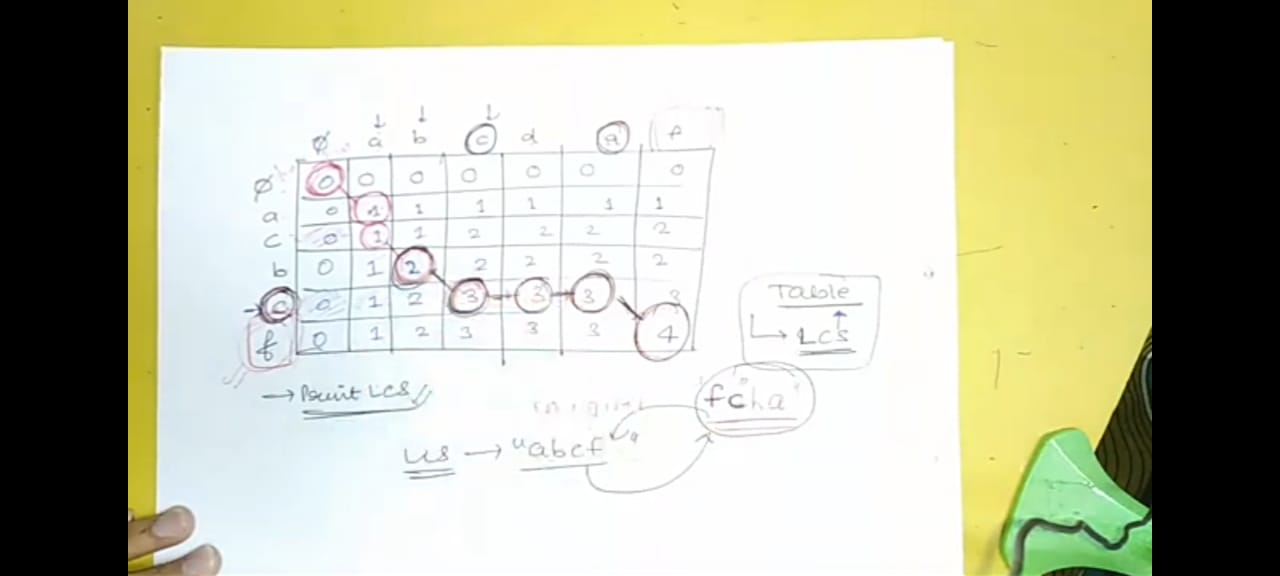 ϕ a b c d a f
ϕ 0 0 0 0 0 0 0
a 0 1 1 1 1 1 1
c 0 1 1 2 2 2 2
b 0 1 2 2 2 2 2
c 0 1 2 3 3 3 3
f 0 1 2 3 3 3 4
Table
→ LCS
→ Print LCS
fcba
LCS → "abcf"